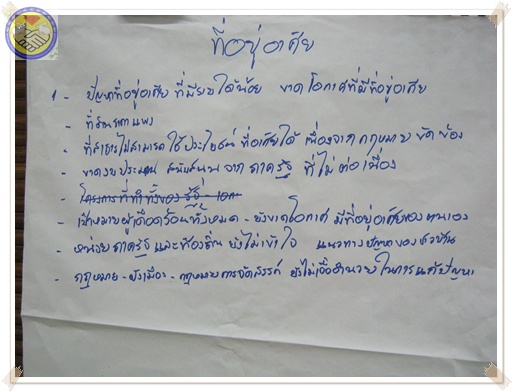 ที่อยู่อาศัย
1 - ปัญหาที่อยู่อาศัย ที่มีรายได้น้อย ขาดโอกาสที่มีที่อยู่อาศัย
- ที่ดินราคาแพง
- ที่สาธารไม่สามารถใช้ประโยชน์ ที่อาศัยได้ เนื่องจากกฎหมายขัดข้อง
- ขาดงบประมาณ สนับสนุนจาก ภาครัฐ ที่ไม่ต่อเนื่อง
- โครงการที่ทำทั้งของรัฐ - เอกชน
- เป้าหมายผู้เดือดร้อนทั้งหมด - ยังขาดโอกาส มีที่อยู่อาศัยของตนเอง
- หน่วยภาครัฐ และท้องถิ่น ยังไม่เข้าใจ แนวทางปัญหาของชาวบ้าน
- กฎหมาย - ผังเมือง - กฎหมายการจัดสรรค์ ยังไม่เอื้ออำนวยในการแก้ปัญหา